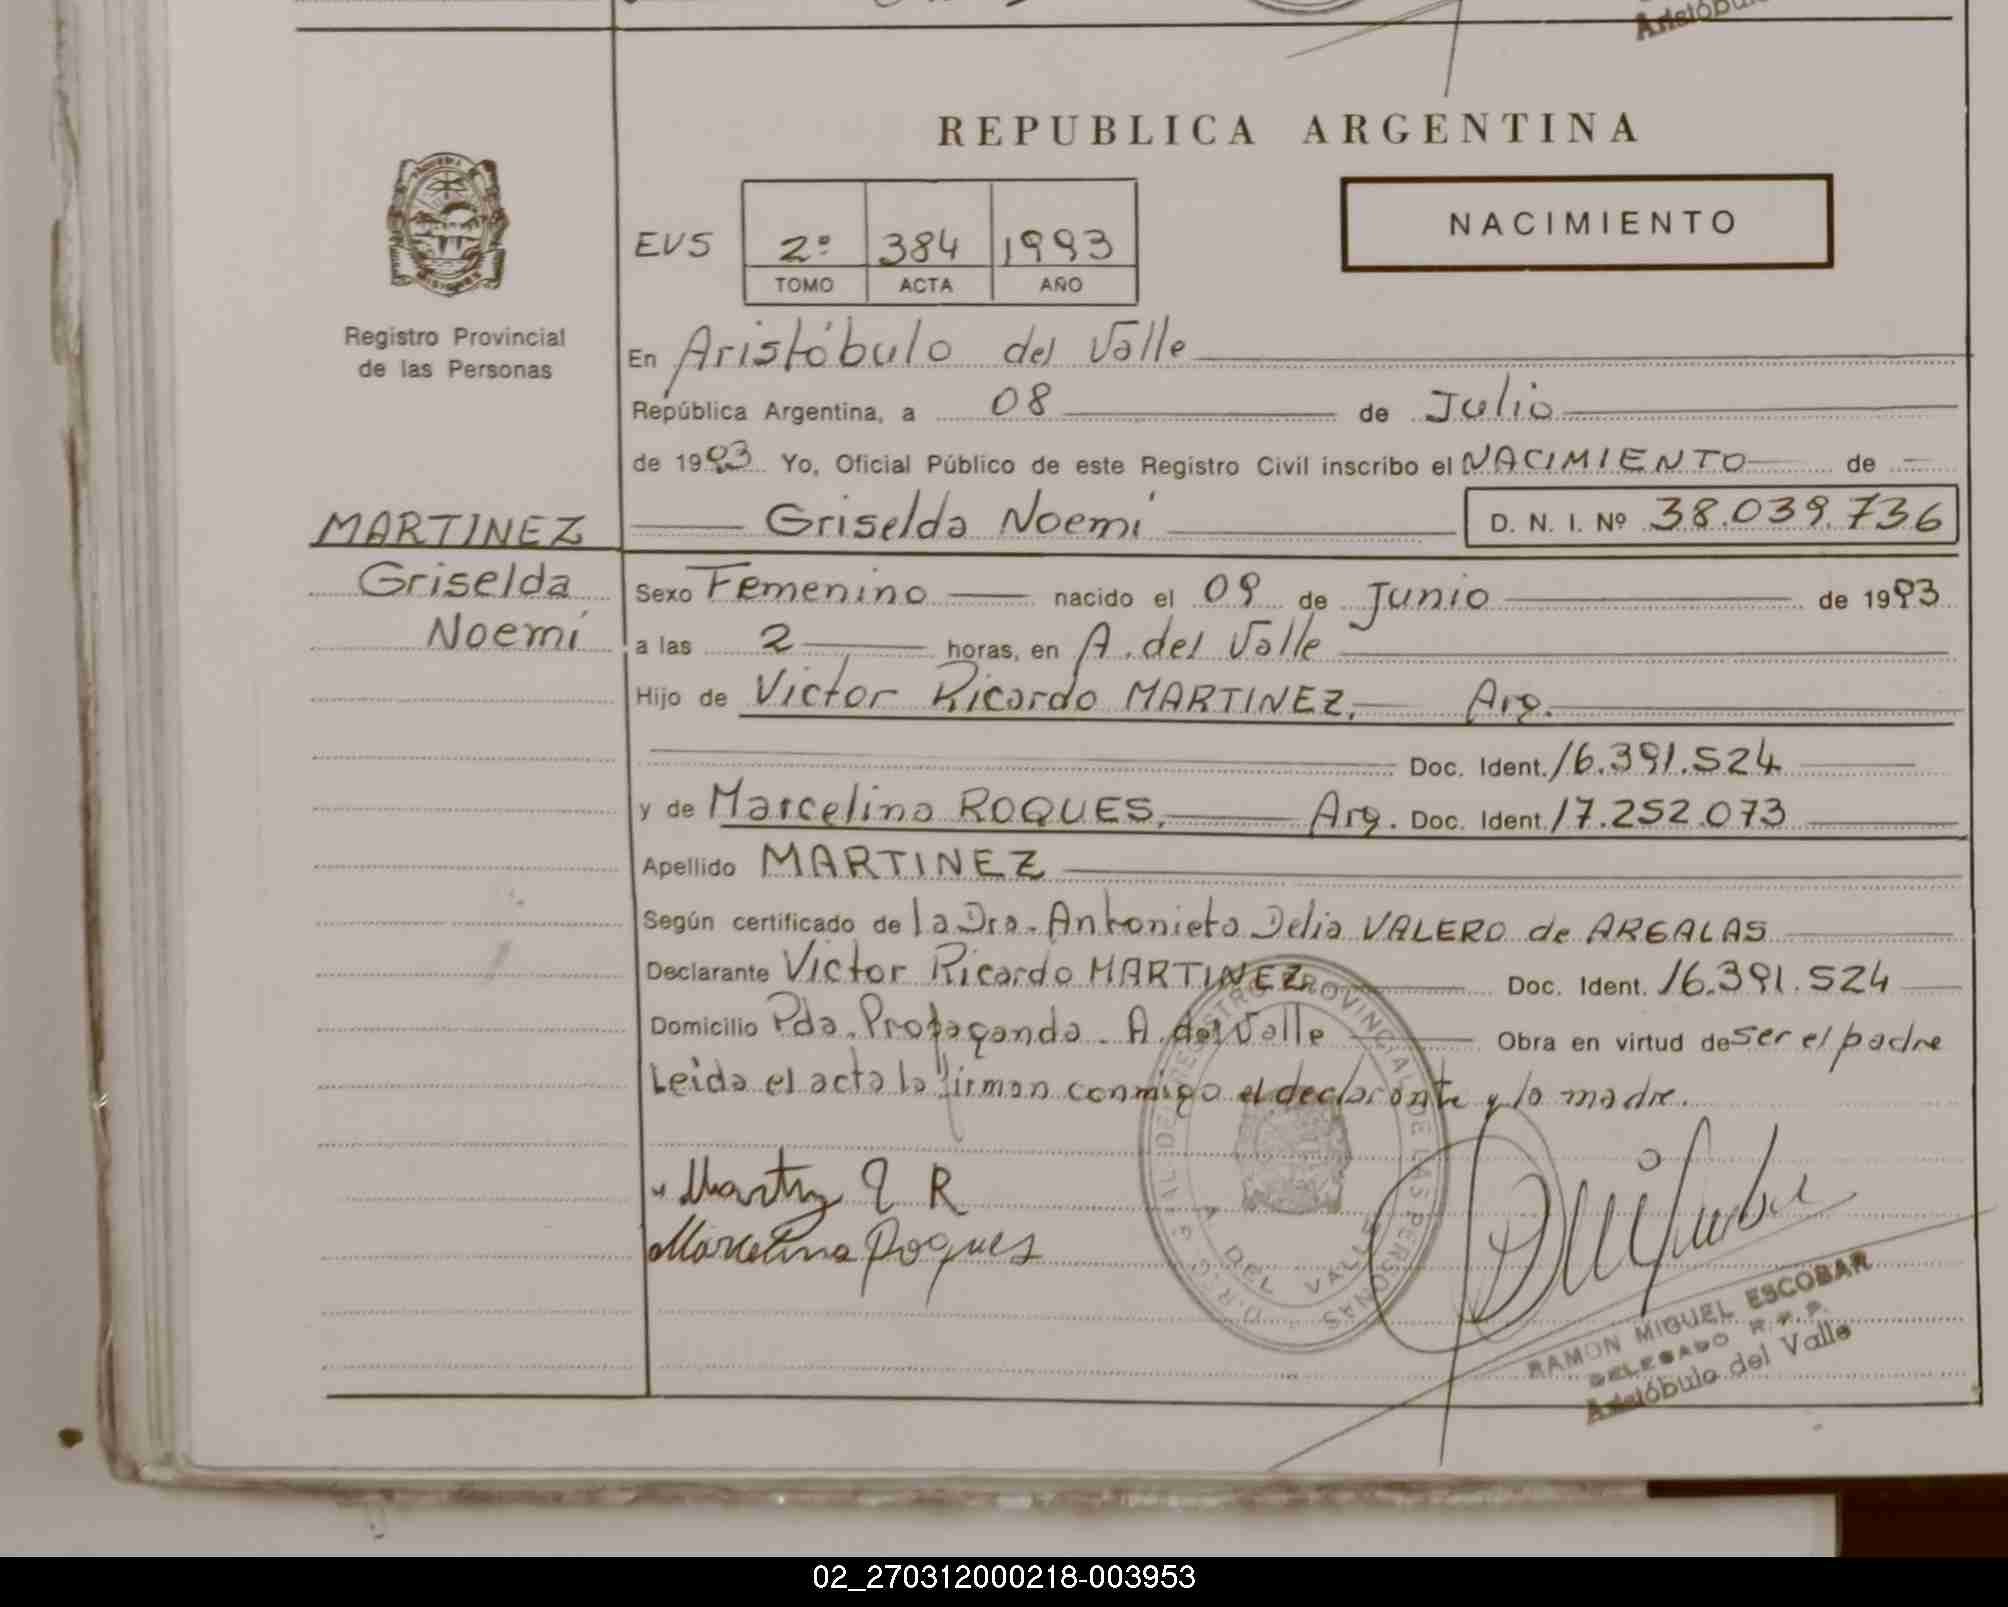 Aristóbu
REPUBLICA ARGENTINA
NACIMIENTO
EVS 2º 384 1993
TOMO ACTA AÑO
Registro Provincial
de las Personas
En Aristóbulo del Valle
República Argentina, a 08 de Julio
de 1993 Yo, Oficial Público de este Registro Civil inscribo el NACIMIENTO de
MARTINEZ
Griselda Noemí D. N. I. Nº 38.039.736
Griselda
Noemí
Sexo Femenino nacido el 09 de Junio de 1993
a las 2 horas, en A. del Valle
Hijo de Victor Ricardo MARTINEZ. Arg.
Doc. Ident. 16.391.524
y de Marcelina ROQUES. Arg. Doc. Ident. 17.252.073
Apellido MARTINEZ
Según certificado de la Dra. Antonieta Delia VALERO de ARGALAS
Declarante Victor Ricardo MARTINEZ Doc. Ident. 16.391.524
Domicilio Pda. Propaganda - A. del Valle Obra en virtud de ser el padre
Leida el acta la firman conmigo el declarante y la madre.
REGISTRO PROVINCIAL DE LAS PERSONAS
A. DEL VALLE
R
Marcelina Roques
RAMON MIGUEL ESCOBAR
DELEGADO R.P.P.
Aristóbulo del Valle
02_270312000218-003953